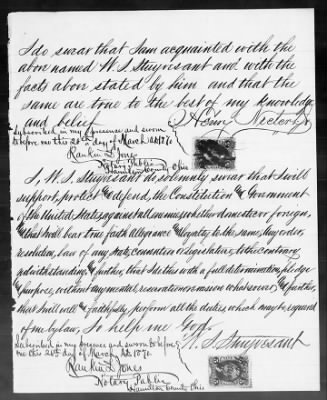 I do swear that I am acquainted with the
above named W. S. Stuyvesant and with the
facts above stated by him and that the
same are true to the best of my knowledge
and belief
Subscribed in my presence and sworn
to before me this 28th day of March A.D. 1870.
Rankin D. Jones
Notary Public
Hamilton County Ohio
I, W. S. Stuyvesant do solemnly swear that I will
support, protect & defend, the Constitution & Government
of the United States, against all enemies, whether domestic or foreign,
& that I will bear true faith, allegiance & loyalty to the same, any order,
resolution, law of any state, convention or legislature, to the contrary
notwithstanding & further, that I do this with a full determination, pledge
& purpose, without any mental reservation or evasion whatsoever, & further,
that I will well & faithfully perform all the duties, which may be required
of me by law, So help me God.
W. S. Stuyvesant
Subscribed in my presence and sworn to before
me this 28th day of March A.D. 1870.
Rankin D. Jones
Notary Public
Hamilton County Ohio